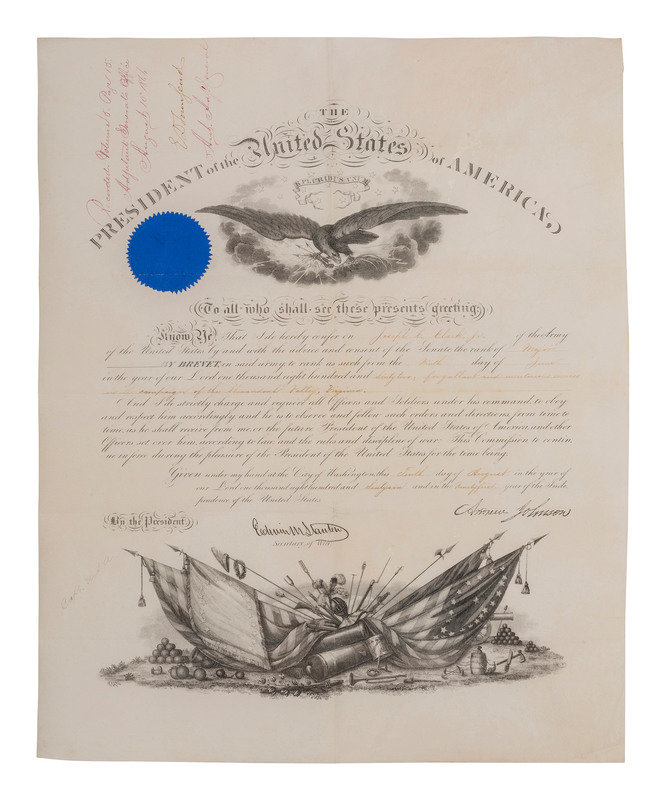 Recorded Volume 5. Page 15.
Adjutant General's Office
August 10th 1866
E D Townsend
Asst Adjt General
THE
PRESIDENT of the United States of AMERICA,
E PLURIBUS UNUM
To all who shall see these presents greeting,
Know Ye, That I do hereby confer on Joseph C. Clark Jr. of the Army
of the United States by and with the advice and consent of the Senate the rank of Major
BY BREVET, in said army to rank as such from the day of June
in the year of our Lord one thousand eight hundred and sixty four, for gallant and meritorious services
in campaign of the Valley, Virginia.
And I do strictly charge and require all Officers and Soldiers under his command to obey
and respect him accordingly and he is to observe and follow such orders and directions from time to
time, as he shall receive from me, or the future President of the United States of America, and other
Officers set over him, according to law and the rules and discipline of war. This Commission to contin
ue in force during the pleasure of the President of the United States for the time being.
Given under my hand at the City of Washington this day of August in the year of
our Lord one thousand eight hundred and sixty six and in the ninety first year of the Inde
pendence of the United States.
By the President
Andrew Johnson
Edwin M Stanton
Secretary of War.